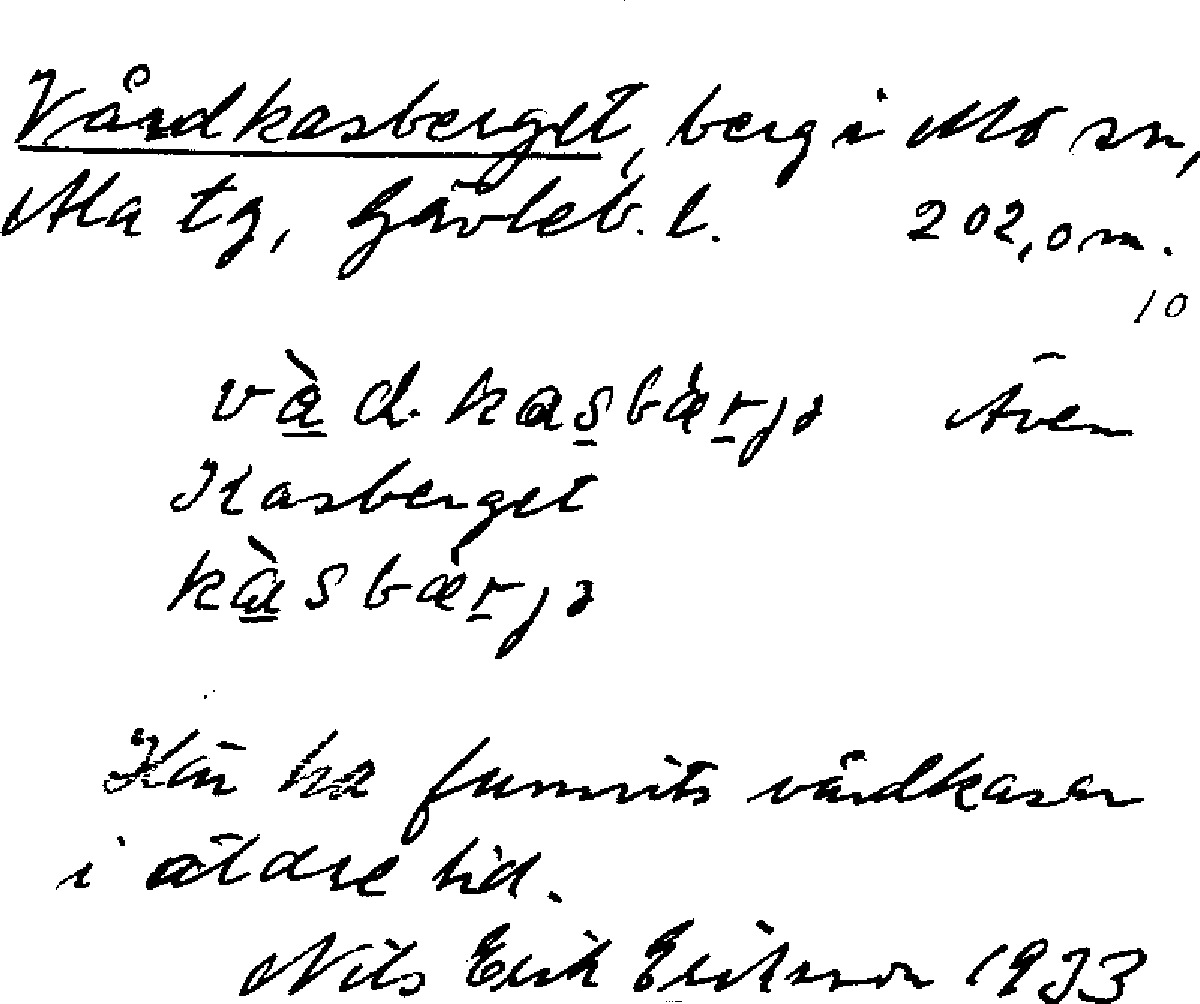 Vårdkasberget, berg i Mo sn,
Ala tg, Gävleb. l. 202,0 m.
10
Även
Kasberget
Här ha funnits vårdkasar
i äldre tid.
Nils Erik Eriksson 1933